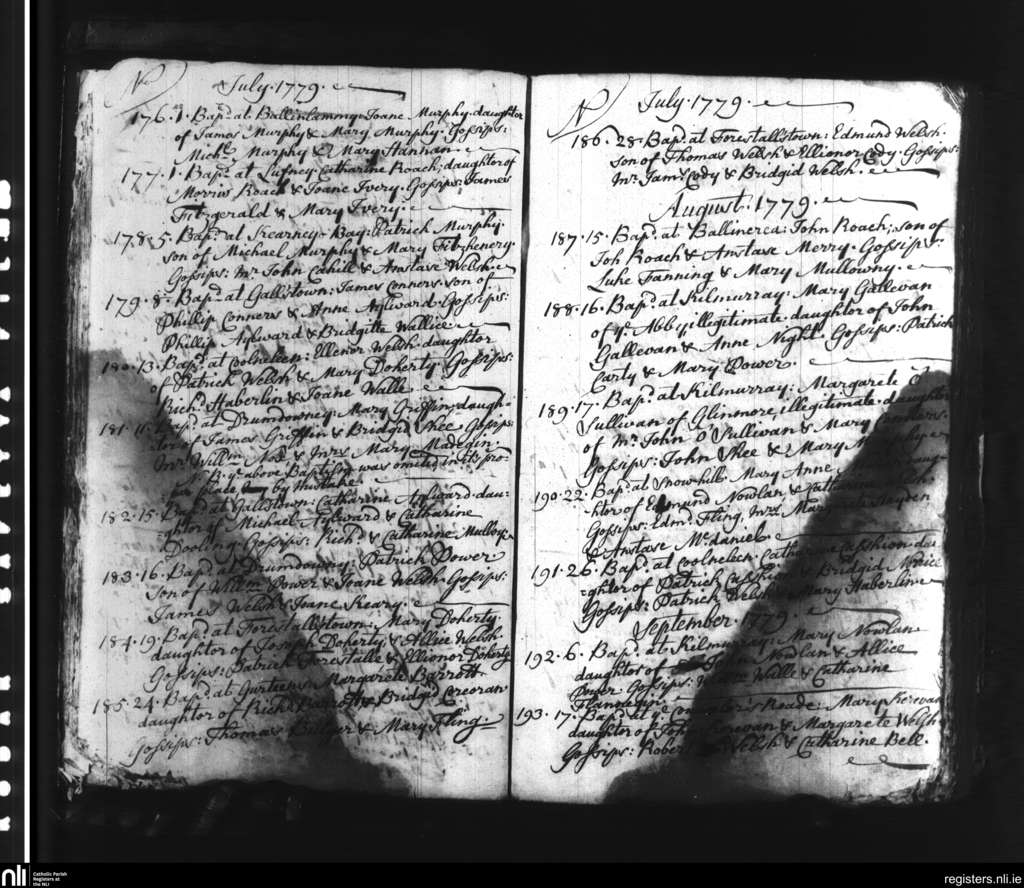 No
July 1779.
176. 1. Bapd. at Ballinlammy: Joane Murphy daughter
of James Murphy & Mary Murphy. Gossips:
Michl. Murphy & Mary Hannan.
177. 1. Bapd. at Lufney: Catharine Roach, daughter of
Morris Roach & Joane Ivery. Gossips: James
Fitzgerald & Mary Ivery.
178. 5. Bapd. at Kearney-Bay: Patrick Murphy.
son of Michael Murphy & Mary Fitzhenery.
Gossips: Mr. John Cahill & Anstase Welsh.
179. 8. Bapd. at Gallstown: James Conners. son of
Phillip Conners & Anne Aylward. Gossips:
Phillip Aylward & Bridgitta Wallice
180. 13. Bapd. at Colneleen: Ellenor Welsh. daughter
of Patrick Welsh & Mary Doherty. Gossips:
Richd. Haberlin & Joane Walle.
181. 11. Bapd. at Drumdowney: Mary Griffin, daugh-
ter of James Griffin & Bridgid Shee Gossips:
Mr. Willm. & Mrs. Mary
N.B. ye. above Baptism was omited in its pro-
per place by mistake.
182. 15. Bapd. at Gallstown: Catharine Aylward. dau-
ghter of Michael Aylward & Catharine
Dooling. Gossips: Richd. & Catharine
183. 16. Bapd. at Drumdowny: Patrick Power
son of Willm. Power & Joane Welsh. Gossips:
James Welsh & Joane Keary.
184. 19. Bapd. at Forestallstown: Mary Doherty
daughter of Joseph Doherty & Allice Welsh.
Gossips: Patrick Forestalle & Ellionor Doherty
185. 24. Bapd. at Margarete Barrott
daughter of Richd. Barrott & Bridgid Corcoran
Gossips: Thomas & Mary Fling.
No
July 1779.
186. 28. Bapd. at Forestallstown: Edmund Welsh.
son of Thomas Welsh & Ellionor Cody. Gossips:
Mr. Jams. Cody & Bridgid Welsh.
August. 1779.
187. 15. Bapd. at Ballinerea: John Roach; son of
Joh Roach & Anstase Merry. Gossips:
Luke Fanning & Mary Mullowny.
188. 16. Bapd. at Kilmurray: Mary Gallevan
of ye. Abby, illegitimate daughter of John
Gallevan & Anne Night. Gossips: Patrick
Carty & Mary Power
189. 17. Bapd. at Kilmurray: Margarete O
Sullivan of Glinmore, illegitimate daughter
of Mr. John O'Sullivan & Mary Conners.
Gossips: John Shee & Mary
190. 22. Bapd. at Snow-hill: Mary Anne daug-
hter of Edmund Nowlan & Catharine
Gossips: Edmd. Fling, Mrs. Margarete Hayden
& Anstase McDaniel
191. 26. Bapd. at Coolneleen: Catharine Casshion dau-
ghter of Patrick Casshion & Bridgid
Gossips: Patrick Welsh & Mary Haberline
September. 1779.
192. 6. Bapd. at Kilmurray: Mary Nowlan
daughter of John Nowlan & Allice
Power. Gossips: Walle & Catharine
Flanategin
193. 17. Bapd. at ye. Reade: Mary Kerevan
daughter of John Kerevan & Margarete Welsh.
Gossips: Robert Welsh & Catharine Bell.
nli
Catholic Parish
Registers at
the NLI
registers.nli.ie